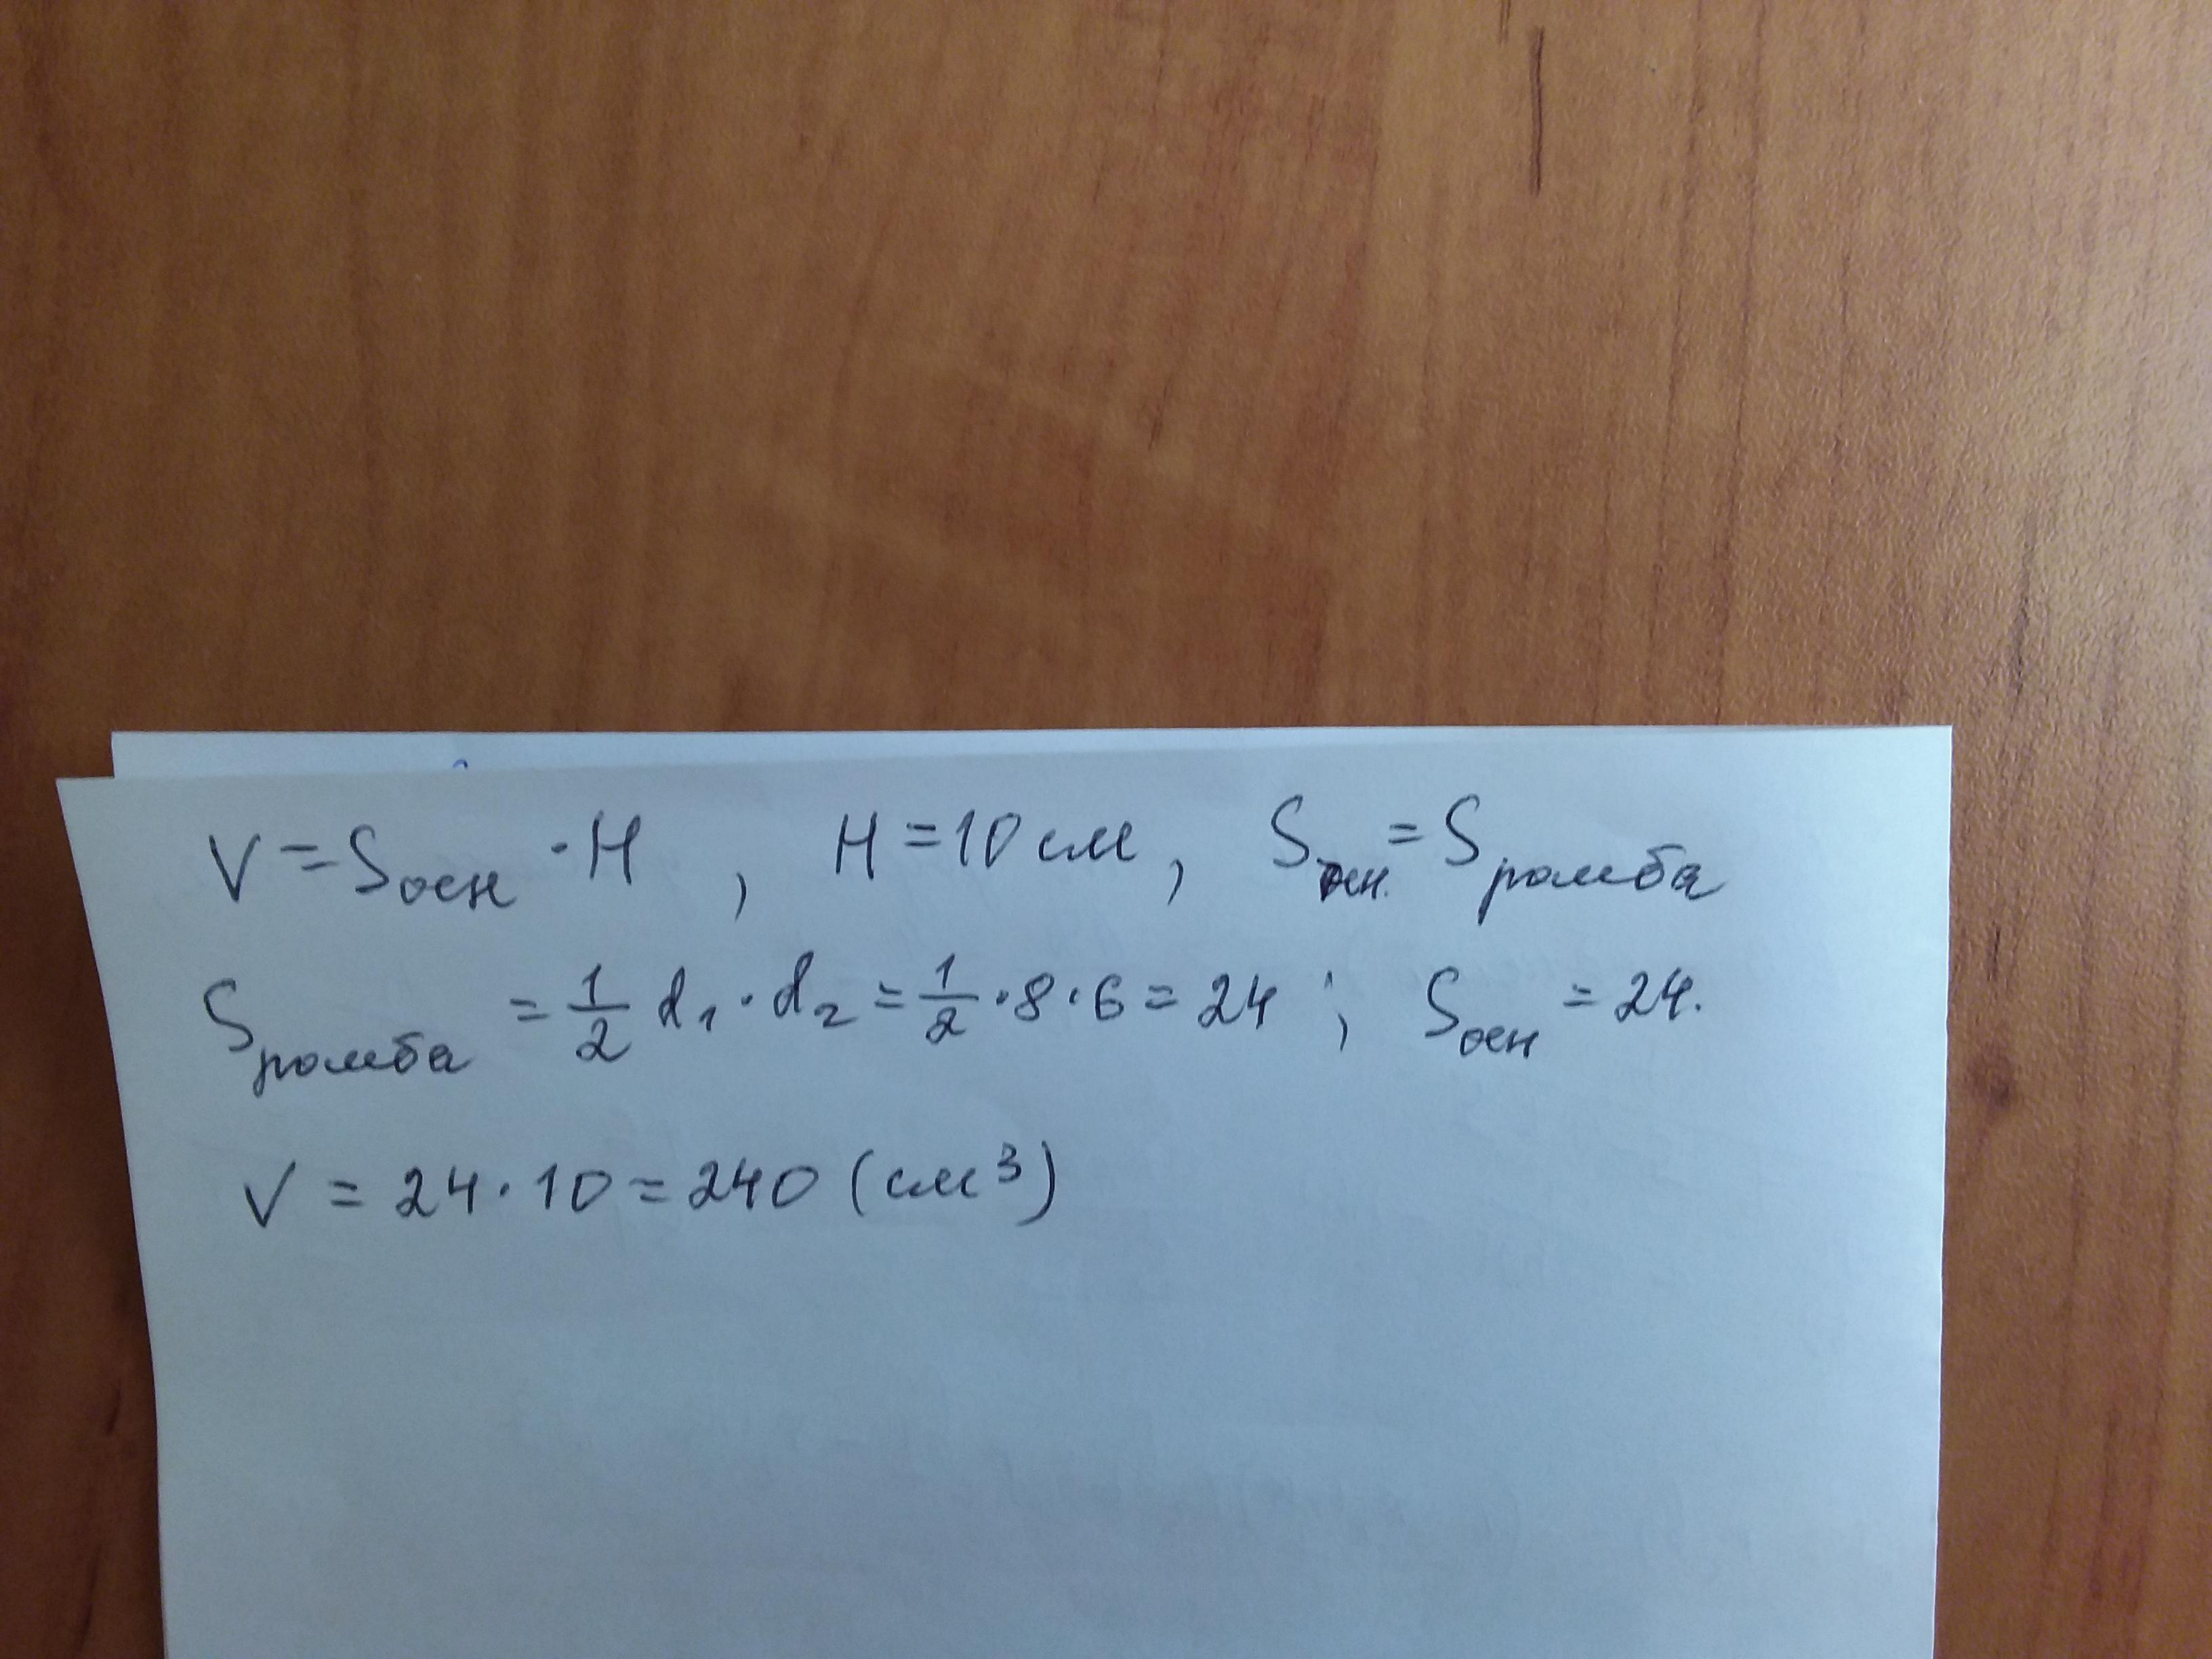 V = Sосн · H , H = 10 см , Sосн. = Sромба
Sромба = 1/2 d₁ · d₂ = 1/2 · 8 · 6 = 24 ; Sосн = 24.
V = 24 · 10 = 240 (см³)